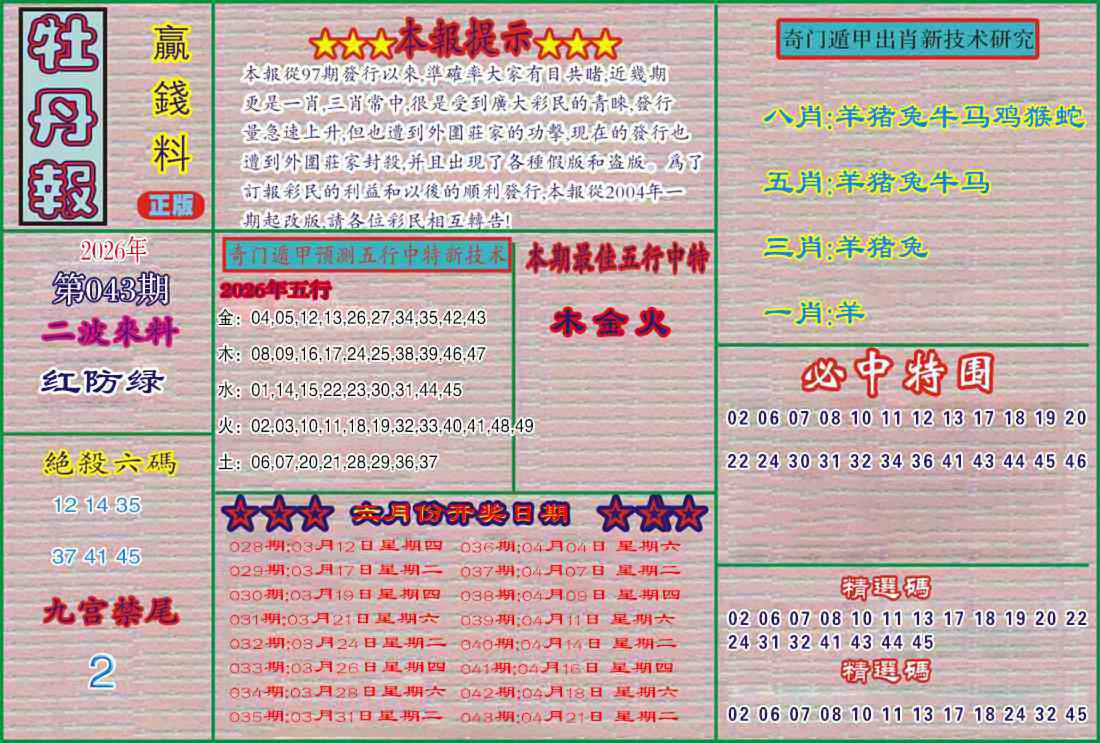 牡丹報
赢錢料
正版
2026年
第043期
二波來料
红防绿
絕殺六碼
12 14 35
37 41 45
九宫禁尾
2
★★★本報提示★★★
本報從97期發行以來,準確率大家有目共睹,近幾期
更是一肖,三肖常中,很是受到廣大彩民的青睞,發行
量急速上升,但也遭到外圍莊家的功擊,現在的發行也
遭到外圍莊家封殺,并且出現了各種假版和盗版。爲了
訂報彩民的利益和以後的順利發行,本報從2004年一
期起改版,請各位彩民相互轉告!
奇门遁甲預测五行中特新技术
2026年五行
金：04,05,12,13,26,27,34,35,42,43
木：08,09,16,17,24,25,38,39,46,47
水：01,14,15,22,23,30,31,44,45
火：02,03,10,11,18,19,32,33,40,41,48,49
土：06,07,20,21,28,29,36,37
本期最佳五行中特
木金火
☆☆☆ 六月份开奖日期 ☆☆☆
028期:03月12日星期四 036期:04月04日 星期六
029期:03月17日星期二 037期:04月07日 星期二
030期:03月19日星期四 038期:04月09日 星期四
031期:03月21日星期六 039期:04月11日 星期六
032期:03月24日星期二 040期:04月14日 星期二
033期:03月26日星期四 041期:04月16日 星期四
034期:03月28日星期六 042期:04月18日 星期六
035期:03月31日星期二 043期:04月21日 星期二
奇门遁甲出肖新技术研究
八肖:羊猪兔牛马鸡猴蛇
五肖:羊猪兔牛马
三肖:羊猪兔
一肖:羊
必中特围
02 06 07 08 10 11 12 13 17 18 19 20
22 24 30 31 32 34 36 41 43 44 45 46
精選碼
02 06 07 08 10 11 13 17 18 19 20 22
24 31 32 41 43 44 45
精選碼
02 06 07 08 10 11 13 17 18 24 32 45